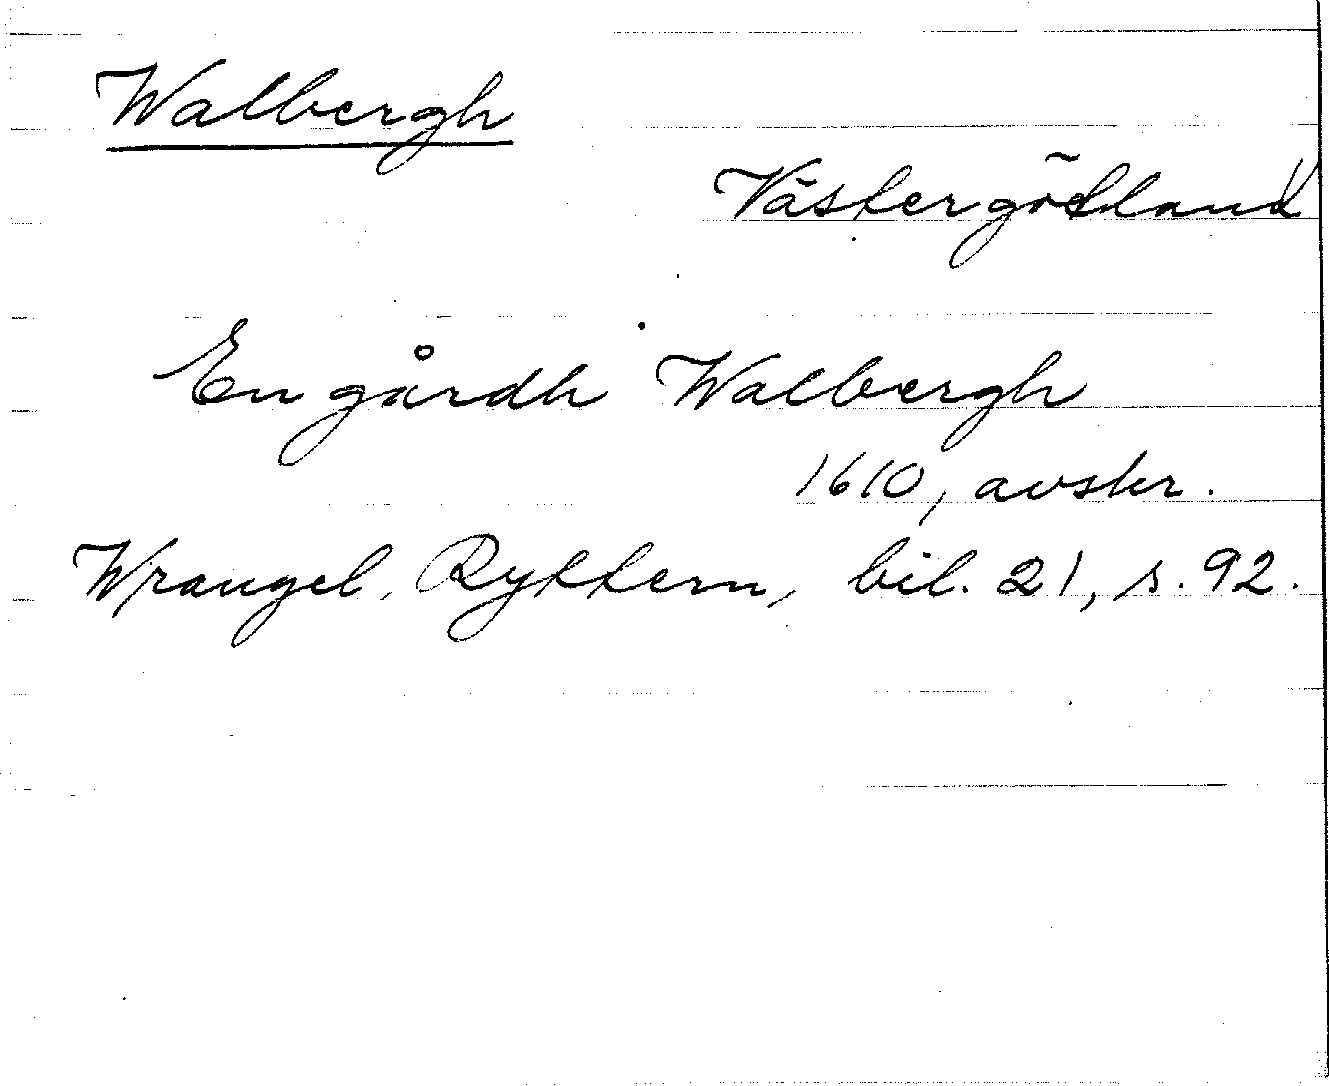 Walbergh
Västergötland
En gårdh Walbergh
1610, avskr.
Wrangel, Ryttern, bil. 21, s. 92.